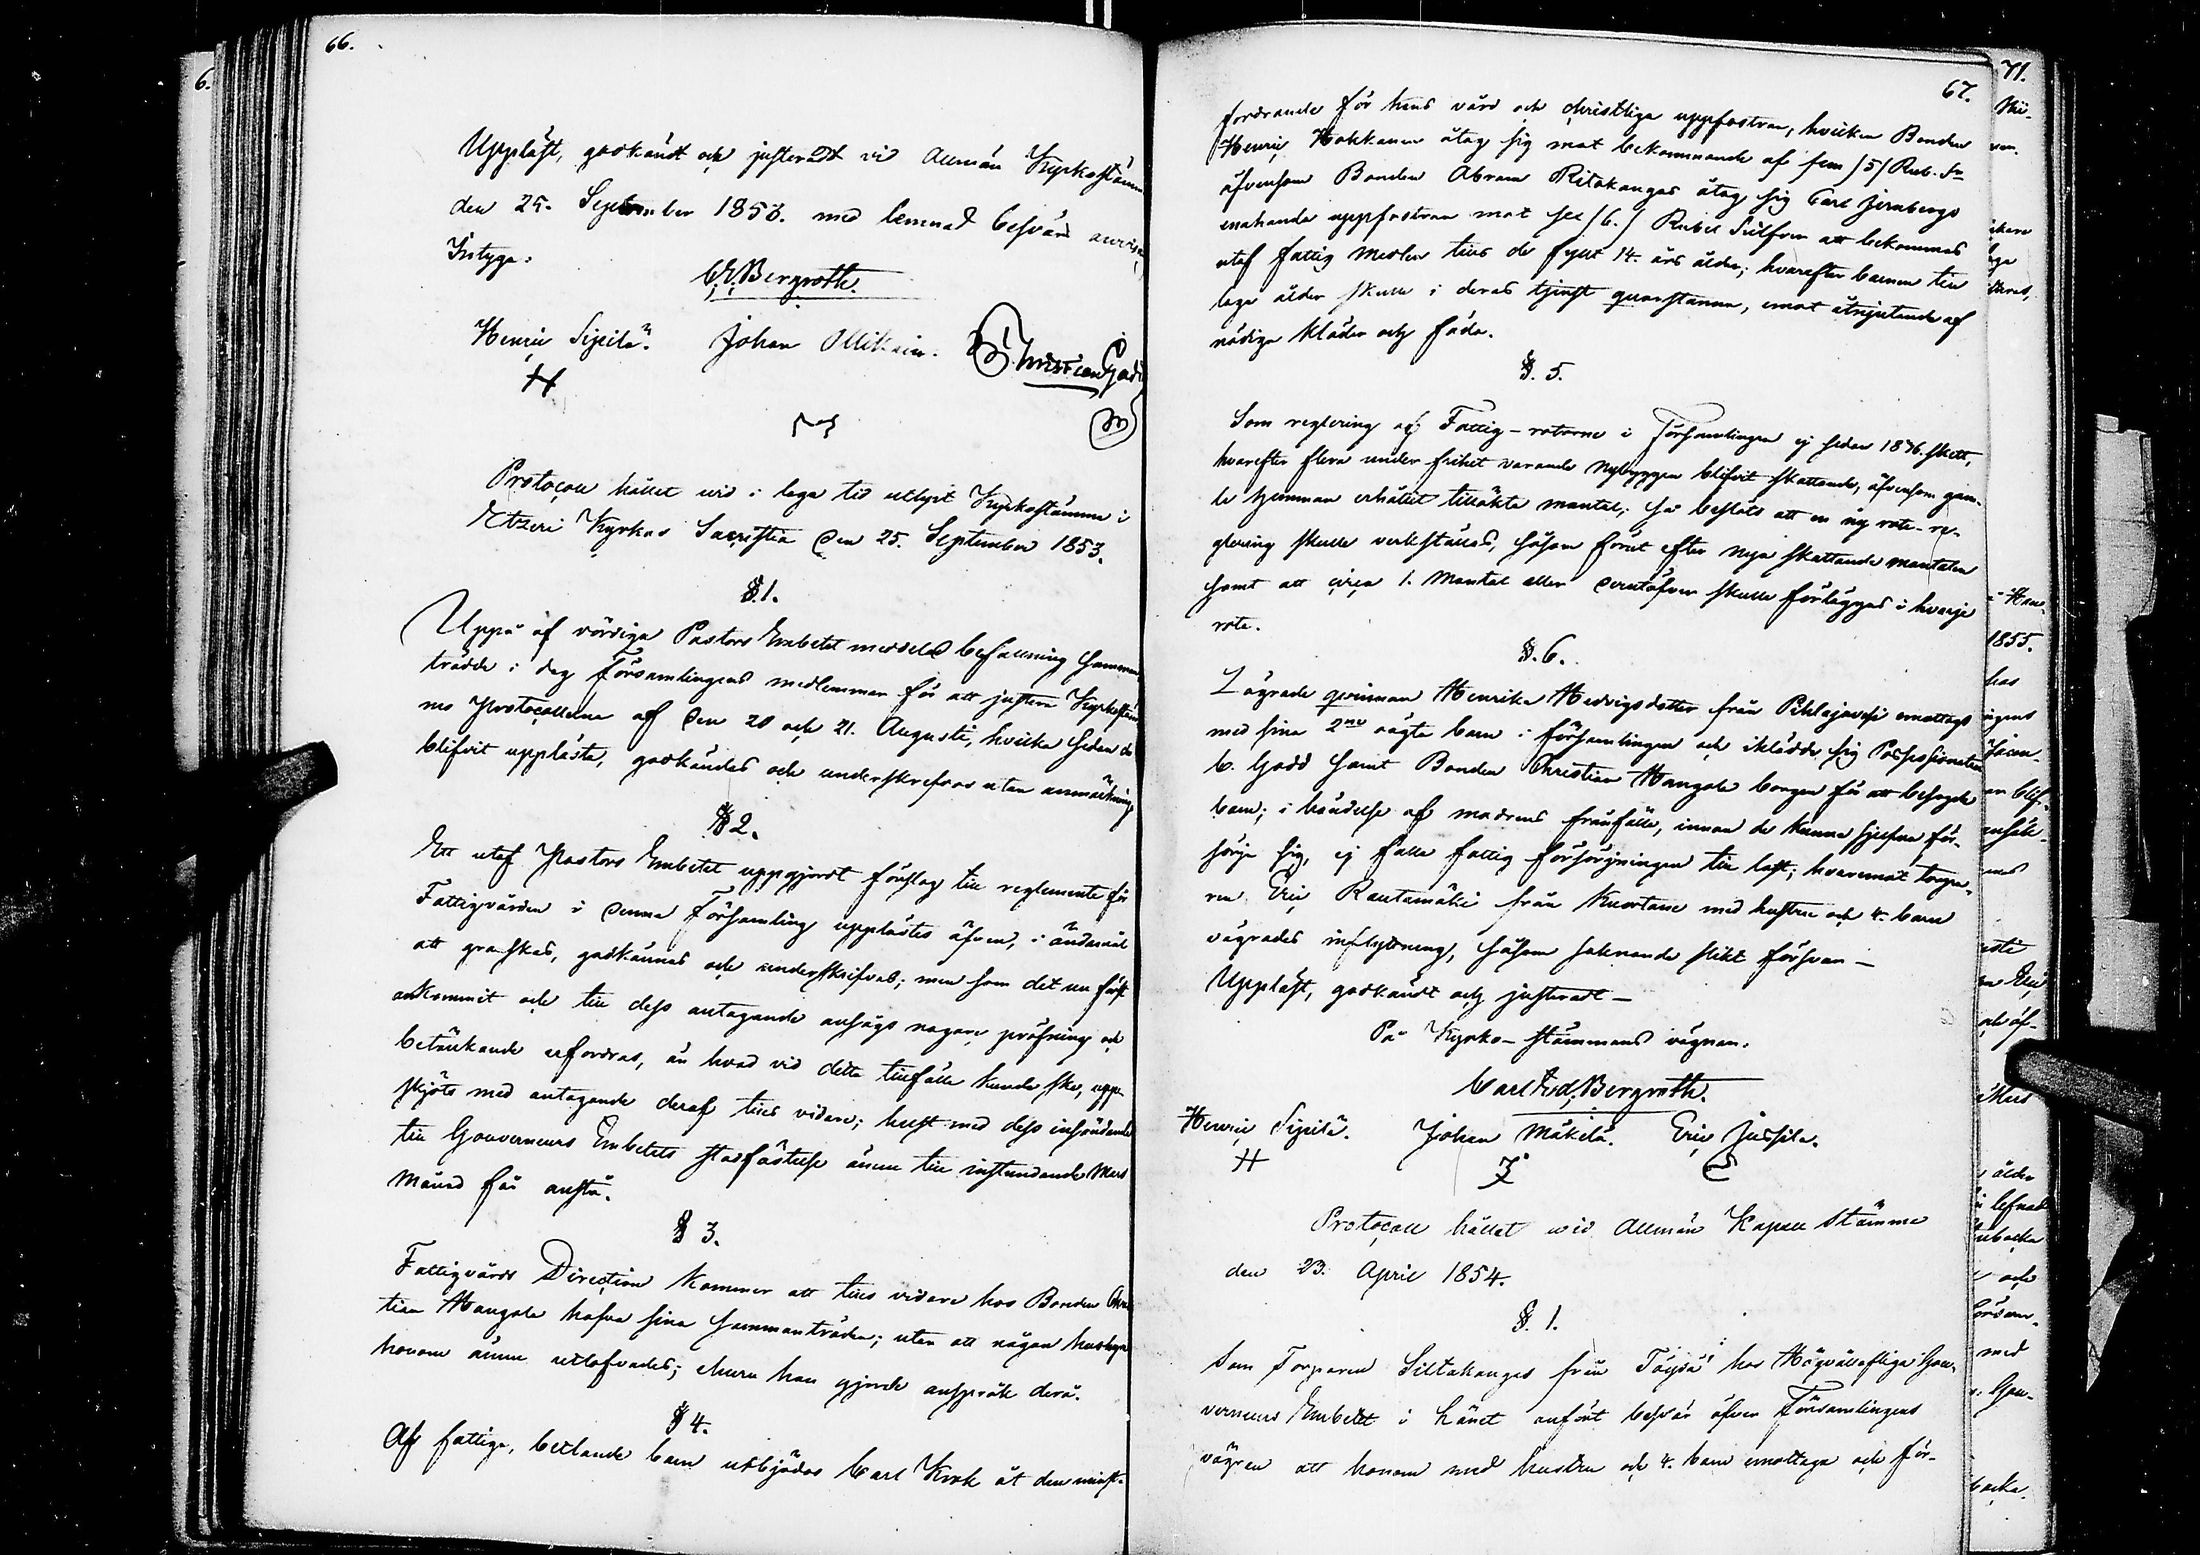 66.
Uppläst, godkändt och justeradt vid Allmän Kyrkostämma
den 25. September 1853. med lemnad besvärs anvisn
Intyga:
C. F. Bergroth.
Henric Sipilä. Johan Ollikain. Christian Gadd
H
Protocoll hållet wid i laga tid utlyst Kyrkostämma i
Etzeri Kyrkas Sacristia den 25. September 1853.
§ 1.
Uppå af vördiga Pastors Embetet meddeld befallning samman
trädde i dag Församlingens medlemmar för att justera Kyrkostäm
mo Protocollerna af den 20 och 21. Augusti, hvilka sedan de
blifvit upplästa, godkändes och underskrefvos utan anmärkning
§ 2.
Ett utaf Pastors Embetet uppgjordt förslag till reglemente för
Fattigvården i denna Församling upplästes äfven, i ändamål
att granskas, godkännas och underskrifvas; men som det nu först
ankommit och till dess antagande ansågs nogare pröfning och
betänkande erfordras, än hvad vid detta tillfälle kunde ske, upp
skjöts med antagande deraf tills vidare; helst med dess insändande
till Gouverneurs Embetets stadfästelse ännu till instundande Mars
Månad får anstå.
§ 3.
Fattigvårds Direction kommer att tills vidare hos Bonden Chris
tian Mangala hafva sina sammanträden; utan att någon hushyra
honom ännu utlofvades; ehuru han gjorde anspråk derå.
§ 4.
Af fattiga, betlande barn utbjödos Carl Krok åt den minst-
67.
fordrande för hans vård och christliga uppfostran, hvilken Bonden
Henric Hakkanen åtog sig mot bekommande af fem /5/ Rub. Sr
äfvensom Bonden Abram Ritakangas åtog sig Carl Jernbergs
enahanda uppfostran mot sex /6./ Rubel Silfver att bekommas
utaf fattig medlen tills de fyllt 14. års ålder; hvarefter barnen till
laga ålder skulle i deras tjenst quarstanna, emot åtnjutande af
nödiga kläder och föda.
§. 5.
Som reglering af Fattig-rotarne i Församlingen ej sedan 1846. skett,
hvarefter flera under frihet varande Nybyggen blifvit skattande, äfvensom gam-
la hemman erhållit tillökta mantal; så beslöts att en ny rote-re-
glering skulle verkställas, såsom förut efter nya skattande mantalen
samt att circa 1. Mantal eller derutöfver skulle förläggas i hvarje
rote.
§. 6.
Lägrade qvinnan Henrika Hedvigsdotter från Pihlajavesi emottogs
med sina 2ne oägta barn i församlingen och iklädde sig Possessionaten
C. Gadd samt Bonden Christian Mangala borgen för att besagde
barn; i händelse af modrens frånfälle, innan de kunna sjelfva för-
sörja sig, ej falla fattig försörjningen till last; hvaremot torpa-
ren Eric Rautamäki från Kuortane med hustru och 4. barn
vägrades inflyttning, såsom saknande slikt försvar —
Uppläst, godkändt och justeradt —
På Kyrko-stämmans vägnar.
Carl Fred. Bergroth.
Henric Sipilä. Johan Mäkelä. Eric Jussila.
H
Protocoll hållet wid Allmän Kapell Stämma
den 23. April 1854.
§. 1.
Som Torparen Siltakangas från Töysä hos Högvällofliga Gou-
verneurs Embetet i Länet anfört besvär öfver Församlingens
vägran att honom med hustru och 4. barn emottaga och för-
71.
1855.